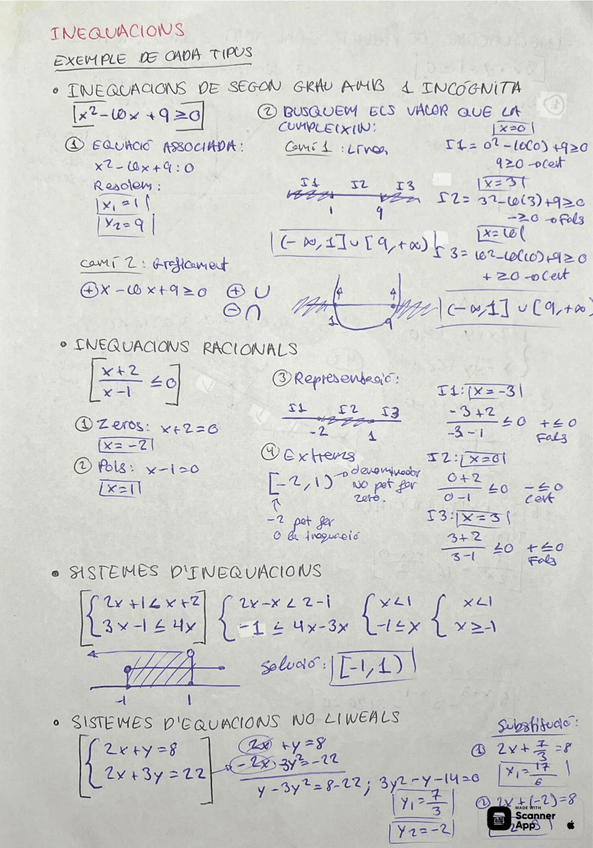 INEQUACIONS
EXEMPLE DE CADA TIPUS
• INEQUACIONS DE SEGON GRAU AMB 1 INCÓGNITA
[x²-10x+9≥0]
① EQUACIÓ ASSOCIADA:
x²-10x+9:0
Resolem:
x₁=1
x₂=9
② BUSQUEM ELS VALOR QUE LA
CUMPLEIXIN:
Camí 1: Línea
I1 I2 I3
1 9
(-∞,1]∪[9,+∞)
x=0
I1=0²-10(0)+9≥0
9≥0→cert
x=3
I2=3²-10(3)+9≥0
-≥0→Fals
x=10
I3=10²-10(10)+9≥0
+≥0→cert
Camí 2: Gràficament
⊕x-10x+9≥0
⊕ ∪
⊖ ∩
1 9
(-∞,1]∪[9,+∞)
• INEQUACIONS RACIONALS
[x+2/x-1 ≤0]
① Zeros: x+2=0
x=-2
② Pols: x-1=0
x=1
③ Representació:
I1 I2 I3
-2 1
④ Extrems
[-2,1)→denominador
NO pot fer
zero.
↑
-2 pot fer
0 la inequació
I1: x=-3
-3+2/-3-1 ≤0 +≤0
Fals
I2: x=0
0+2/0-1 ≤0 -≤0
cert
I3: x=3
3+2/3-1 ≤0 +≤0
Fals
• SISTEMES D'INEQUACIONS
[{2x+1<x+2] {2x-x<2-1 {x<1 {x<1
3x-1≤4x -1≤4x-3x -1≤x x≥-1
-1 1
Solució: [-1,1)
• SISTEMES D'EQUACIONS NO LINEALS
[{2x+y=8
2x+3y=22]
2x+y=8
-2x-3y²=-22
y-3y²=8-22; 3y²-y-14=0
y₁=7/3
y₂=-2
Substitució:
① 2x+7/3=8
x₁=17/6
② 2x+(-2)=8
MADE WITH
Scanner
App